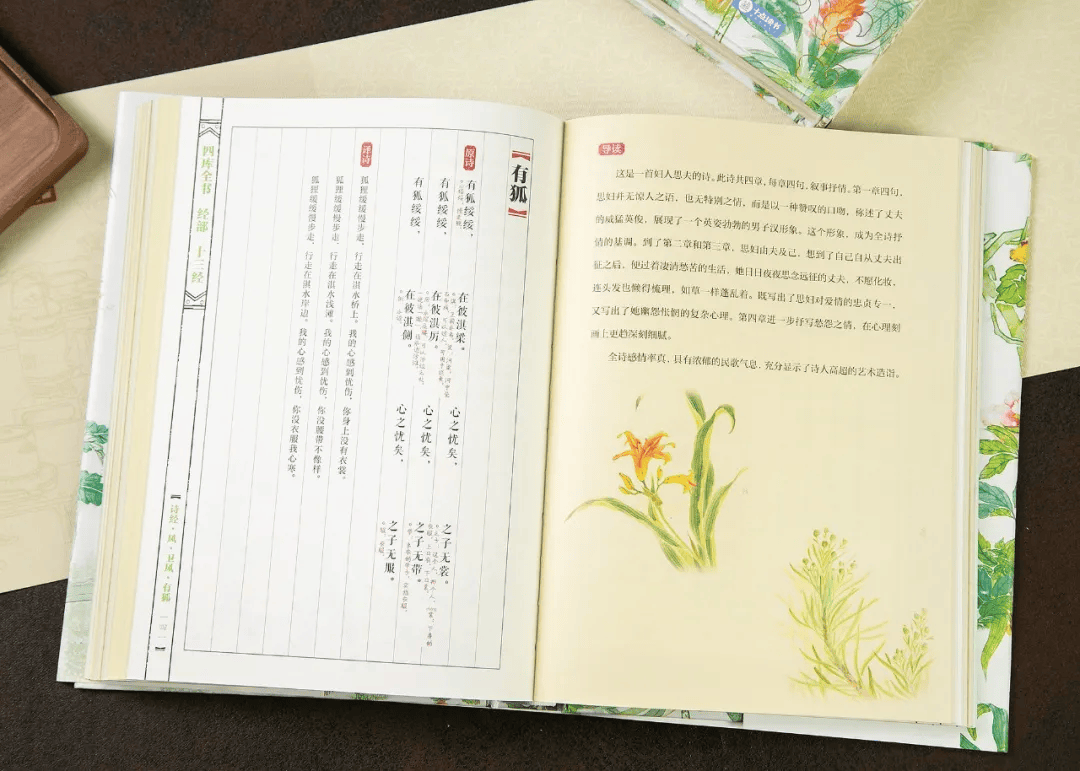 四库全书 经部 十三经
诗经·风·卫风·有狐
有狐
原诗
有狐绥绥，在彼淇梁。心之忧矣，之子无裳。
有狐绥绥，在彼淇厉。心之忧矣，之子无带。
有狐绥绥，在彼淇侧。心之忧矣，之子无服。
译诗
狐狸缓缓慢步走，行走在淇水桥上。我的心感到忧伤，你身上没有衣裳。
狐狸缓缓慢步走，行走在淇水浅滩。我的心感到忧伤，你没腰带不像样。
狐狸缓缓慢步走，行走在淇水岸边。我的心感到忧伤，你没衣服我心寒。
导读
这是一首妇人思夫的诗。此诗共四章，每章四句，叙事抒情。第一章四句，
思妇并无惊人之语，也无特别之情，而是以一种赞叹的口吻，称述了丈夫
的威猛英俊，展现了一个英姿勃勃的男子汉形象。这个形象，成为全诗抒
情的基调。到了第二章和第三章，思妇由夫及己，想到了自己自从丈夫出
征之后，便过着凄清愁苦的生活，她日日夜夜思念远征的丈夫，不愿化妆，
连头发也懒得梳理，如草一样蓬乱着。既写出了思妇对爱情的忠贞专一，
又写出了她幽怨怅惘的复杂心理。第四章进一步抒写愁怨之情，在心理刻
画上更趋深刻细腻。
全诗感情率真，具有浓郁的民歌气息，充分显示了诗人高超的艺术造诣。
十点读书